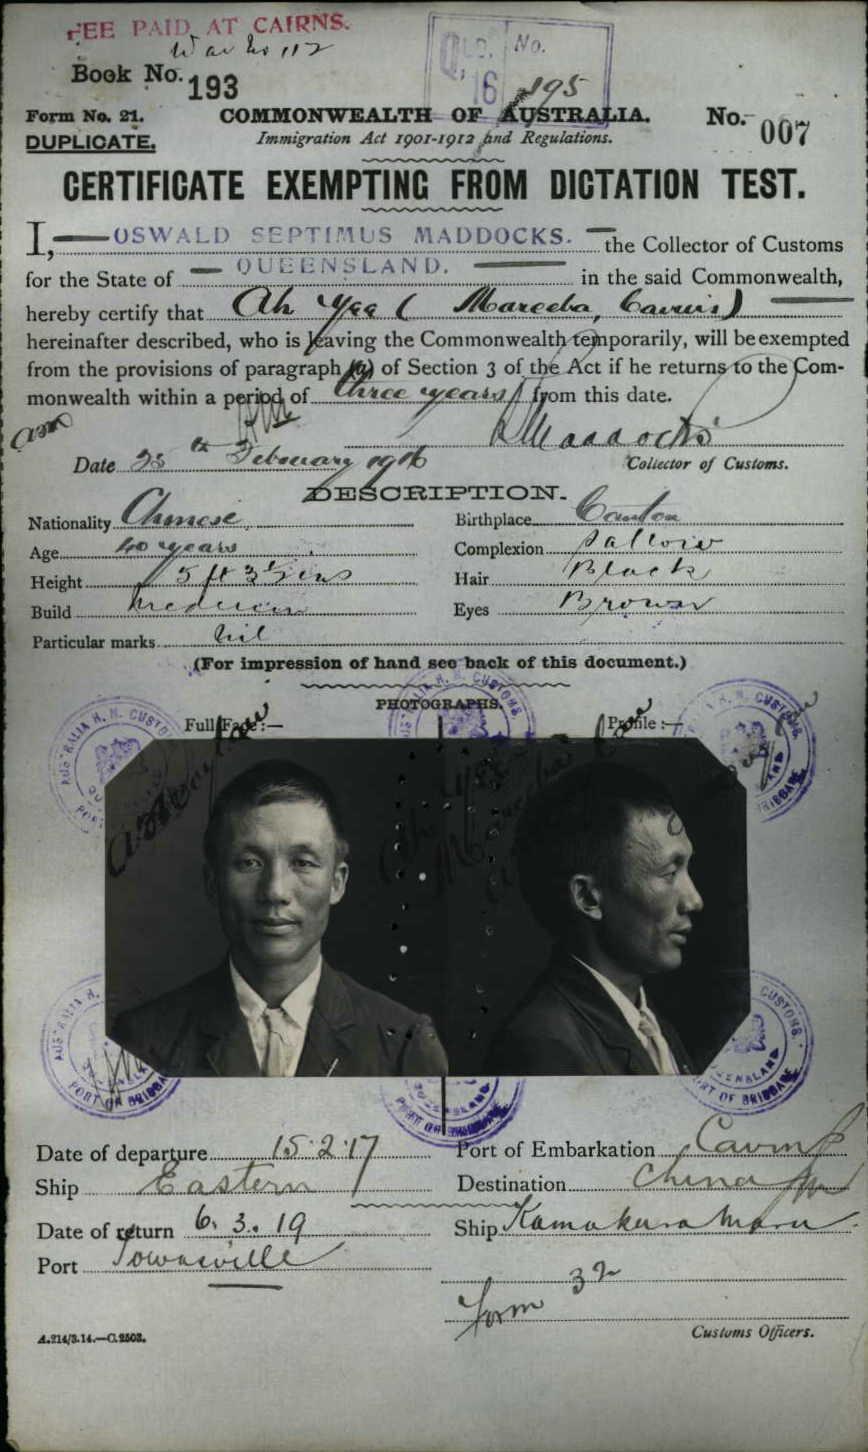 FEE PAID AT CAIRNS.
War No 112
Book No. 193
QLD. No.
16 / 195
Form No. 21. COMMONWEALTH OF AUSTRALIA. No. 007
DUPLICATE. Immigration Act 1901-1912 and Regulations.
CERTIFICATE EXEMPTING FROM DICTATION TEST.
I, OSWALD SEPTIMUS MADDOCKS. the Collector of Customs
for the State of QUEENSLAND. in the said Commonwealth,
hereby certify that Ah Yee (Mareeba, Cairns)
hereinafter described, who is leaving the Commonwealth temporarily, will be exempted
from the provisions of paragraph (a) of Section 3 of the Act if he returns to the Com-
monwealth within a period of three years from this date.
Maddocks
Date February 1916 Collector of Customs.
DESCRIPTION.
Nationality Chinese Birthplace Canton
Age 40 years Complexion Sallow
Height 5 ft 3½ ins Hair Black
Build medium Eyes Brown
Particular marks nil
(For impression of hand see back of this document.)
PHOTOGRAPHS.
Full Face:— Profile:—
Date of departure 15.2.17 Port of Embarkation Cairns
Ship Eastern Destination China
Date of return 6.3.19 Ship Kamakura Maru
Port Townsville
Form 32
A.214/3.14.—C.2503. Customs Officers.